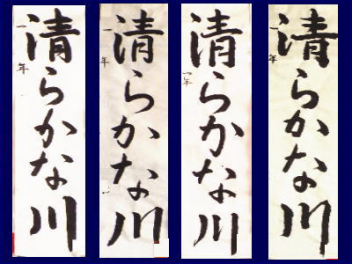 清らかな川
一年
清らかな川
年
清らかな川
一年
清らかな川
年